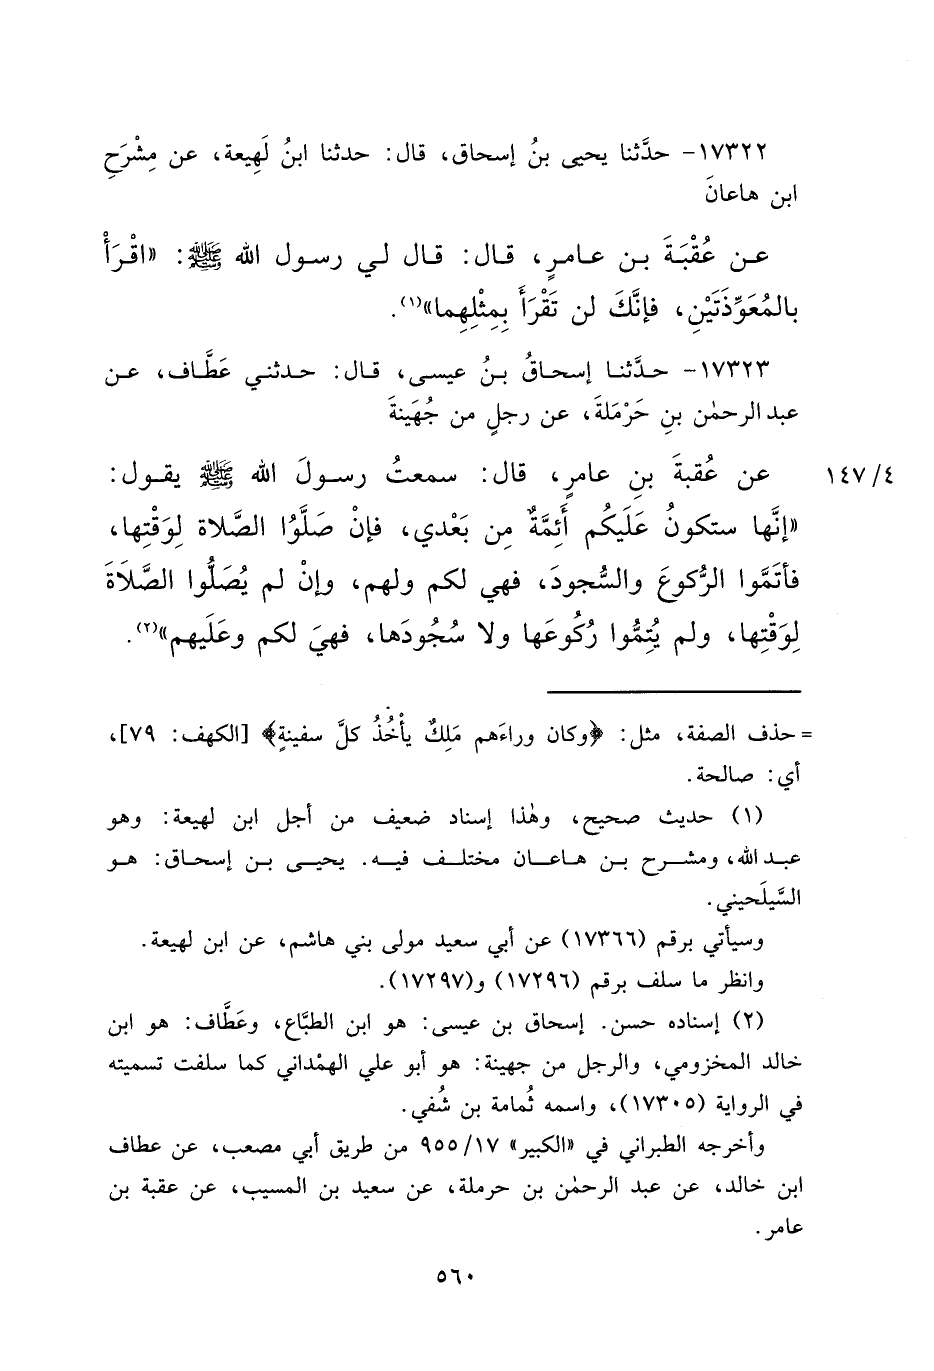 ١٧٣٢٢- حدَّثنا يحيى بنُ إسحاق، قال: حدثنا ابنُ لَهِيعة، عن مِشْرَحِ
ابن هاعانَ
عـن عُقْبَةَ بـن عـامـرٍ، قـال: قـال لـي رسـول الله ﷺ: «اقْرَأْ
بالمُعَوِّذَتَيْنِ، فإنَّكَ لن تَقْرَأَ بِمِثْلِهِما»(١).
١٧٣٢٣- حـدَّثنـا إسحـاقُ بـنُ عيسى، قـال: حـدثنـي عَطَّـاف، عـن
عبد الرحمٰن بنِ حَرْمَلةَ، عن رجلٍ من جُهَينةَ
٤/ ١٤٧ عن عُقبةَ بنِ عامرٍ، قال: سمعتُ رسـولَ الله ﷺ يقـول:
«إنَّها ستكونُ عَلَيكُم أَئِمَّةٌ مِن بَعْدي، فإنْ صَلَّوُا الصَّلاة لِوَقْتِها،
فأتَمَّوا الرُّكوعَ والسُّجودَ، فهي لكم ولهم، وإنْ لم يُصَلُّوا الصَّلَاةَ
لِوَقْتِها، ولم يُتِمُّوا رُكُوعَها ولا سُجُودَها، فهيَ لكم وعَلَيهم»(٢).
= حذف الصفة، مثل: ﴿وكان وراءَهم مَلِكٌ يأْخُذُ كلَّ سفينةٍ﴾ [الكهف: ٧٩]،
أي: صالحة.
(١) حديث صحيح، وهٰذا إسناد ضعيف من أجل ابن لهيعة: وهو
عبـد الله، ومشـرح بـن هـاعـان مختلـف فيـه. يحيـى بـن إسحـاق: هـو
السَّيلَحيني.
وسيأتي برقم (١٧٣٦٦) عن أبي سعيد مولى بني هاشم، عن ابن لهيعة.
وانظر ما سلف برقم (١٧٢٩٦) و(١٧٢٩٧).
(٢) إسناده حسن. إسحاق بن عيسى: هو ابن الطبَّاع، وعَطَّاف: هو ابن
خالد المخزومي، والرجل من جهينة: هو أبو علي الهمْداني كما سلفت تسميته
في الرواية (١٧٣٠٥)، واسمه ثُمامة بن شُفي.
وأخرجه الطبراني في «الكبير» ١٧/ ٩٥٥ من طريق أبي مصعب، عن عطاف
ابن خالد، عن عبد الرحمٰن بن حرملة، عن سعيد بن المسيب، عن عقبة بن
عامر.
٥٦٠